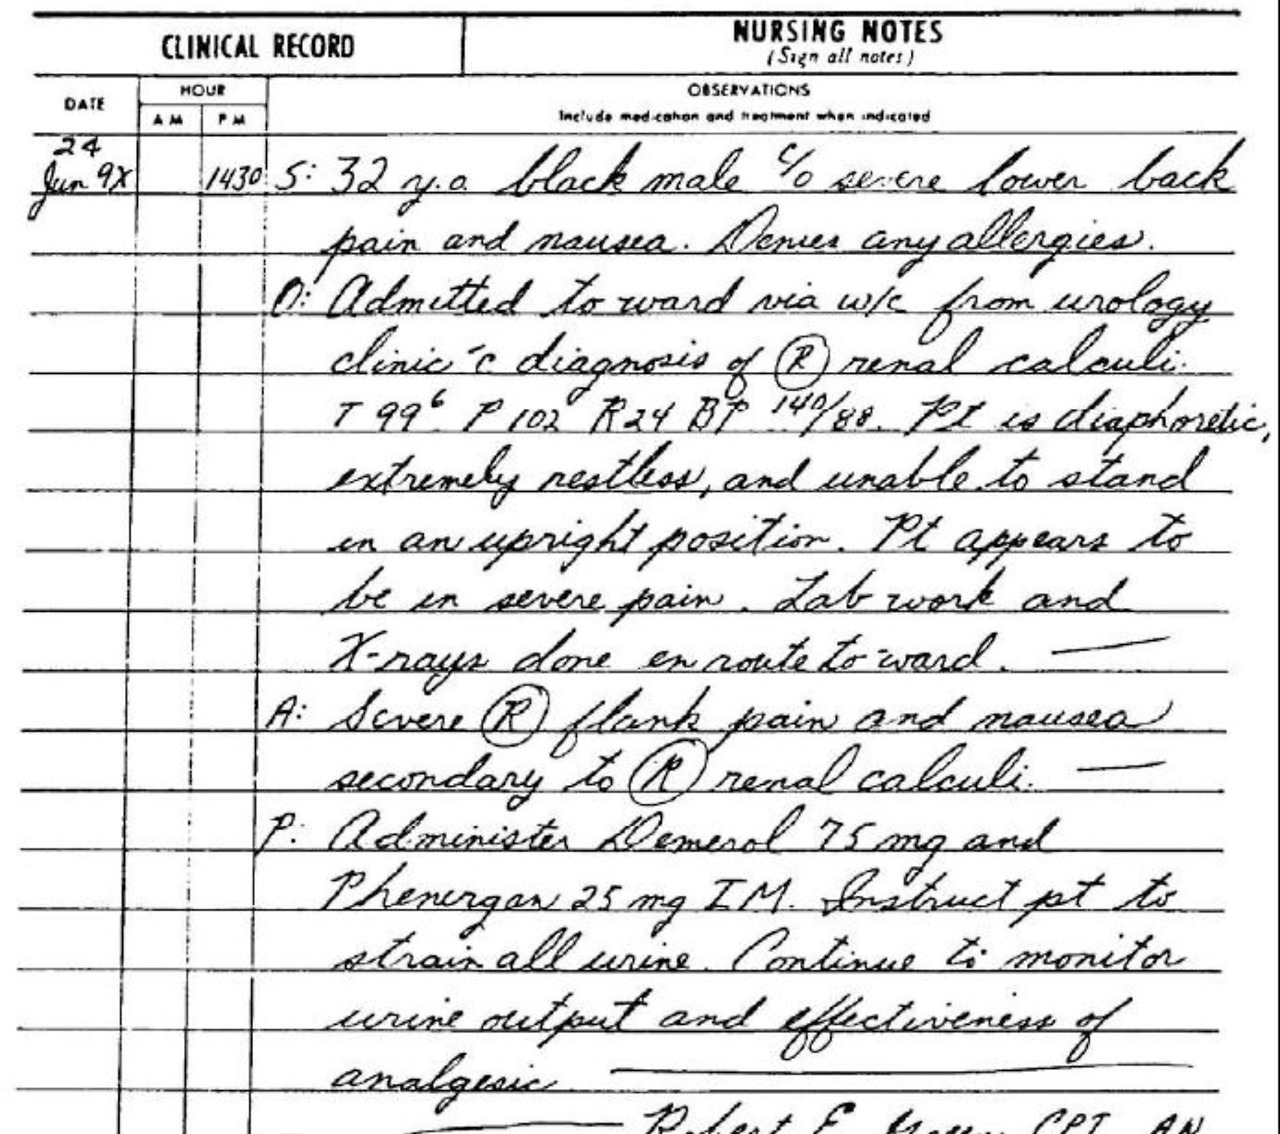 CLINICAL RECORD
NURSING NOTES
(Sign all notes)
DATE
HOUR
AM PM
OBSERVATIONS
Include medication and treatment when indicated
24
Jun 9X 1430 S: 32 y.o. black male c/o severe lower back
pain and nausea. Denies any allergies.
O: Admitted to ward via w/c from urology
clinic c̄ diagnosis of Ⓡ renal calculi.
T 99⁶ P 102 R 24 BP 140/88. Pt is diaphoretic,
extremely restless, and unable to stand
in an upright position. Pt appears to
be in severe pain. Lab work and
X-rays done en route to ward. —
A: Severe Ⓡ flank pain and nausea
secondary to Ⓡ renal calculi. —
P: Administer Demerol 75 mg and
Phenergan 25 mg IM. Instruct pt to
strain all urine. Continue to monitor
urine output and effectiveness of
analgesic —
Robert E. CPT, AN